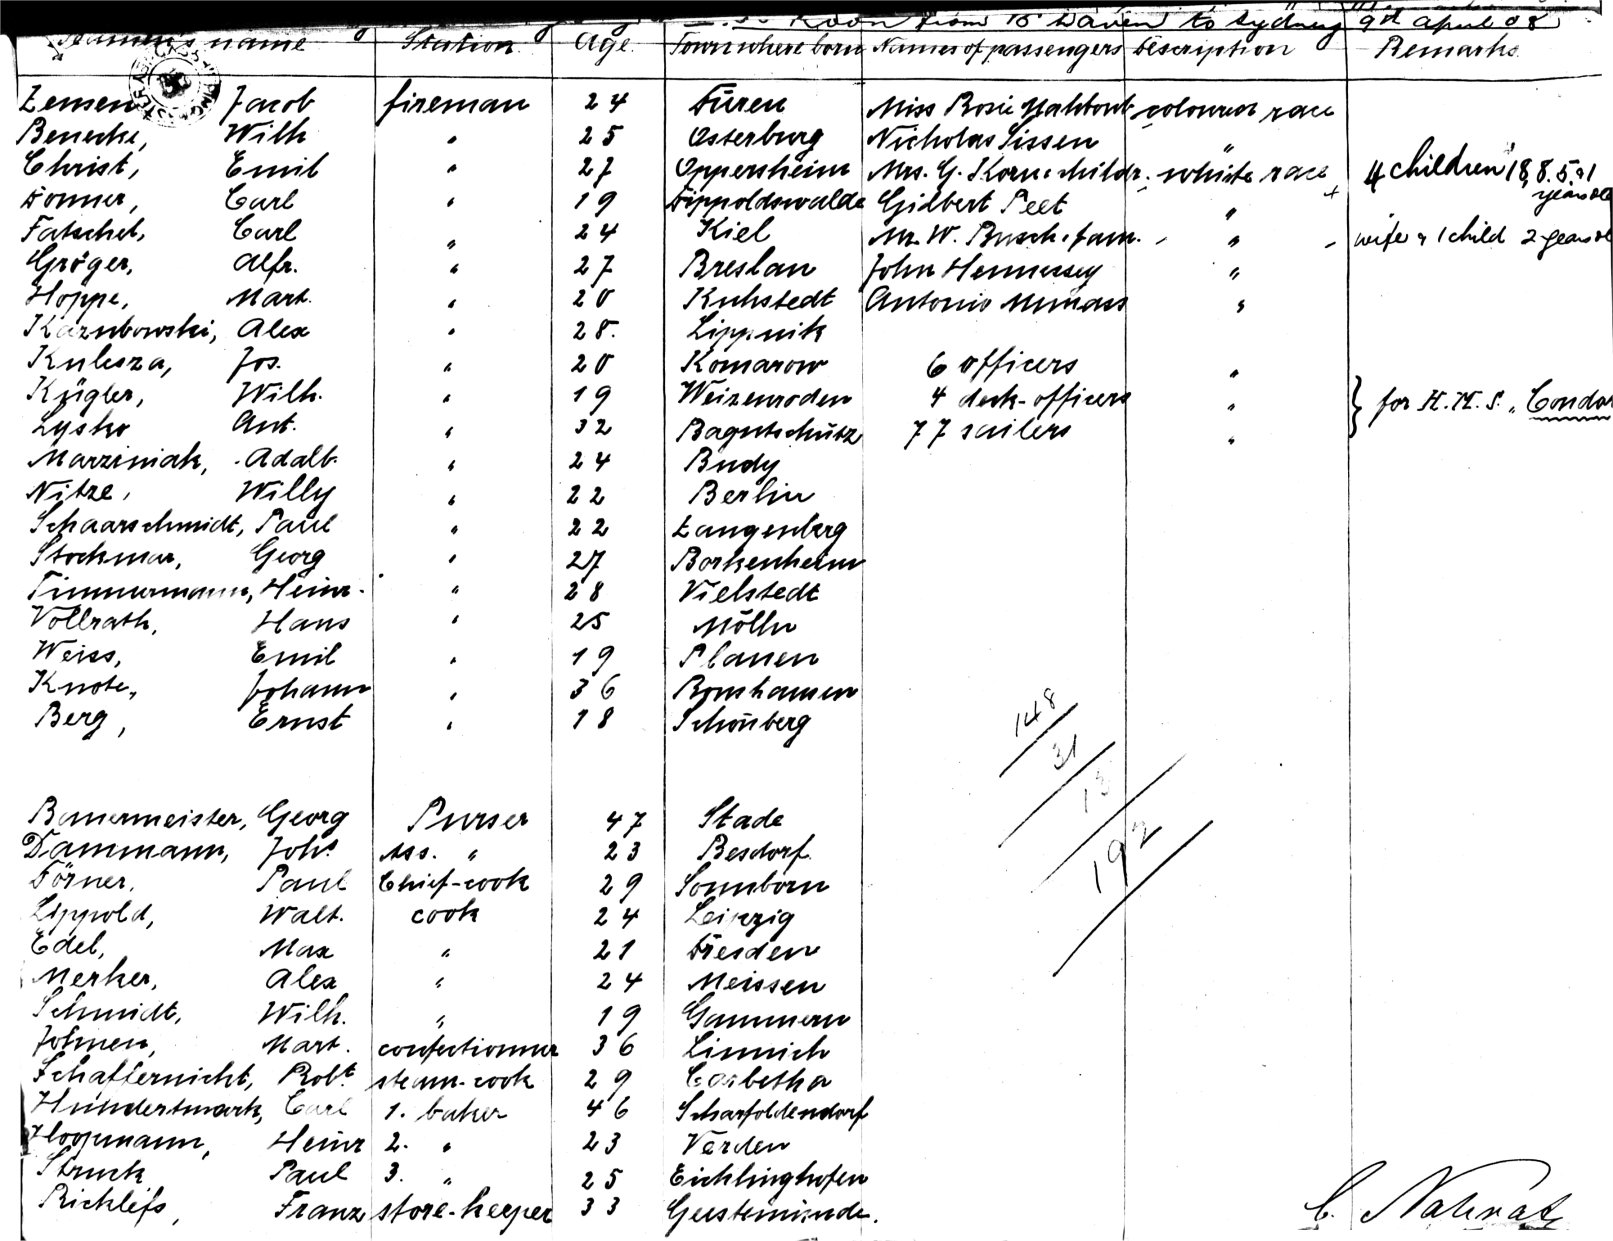 Roon from to Sydney 9th April 08
Seamen's name Station Age Town where born Names of passengers Description Remarks
Zensen Jacob fireman 24 Düren Miss Rosie coloured race
Benecke, Wilh " 25 Osterburg Nicholas Sissen "
Christ, Emil " 27 Oppersheim Mrs. G. Korn & childr. - white race 4 children 18, 8. 5. & 1 years old
Donner, Carl " 19 Dippoldswalde Gilbert Peet "
Fatschel, Carl " 24 Kiel Mr. W. Busch & fam. - " - wife & 1 child 2 years old
Gröger, Alfr. " 27 Breslau John Hennessey "
Hoppe, Mart. " 20 Kuhstedt Antonio Mimass "
Kaznbowski, Alex " 28. Lippnik
Kulesza, Jos. " 20 Komarow 6 officers "
Kügler, Wilh. " 19 Weizenroden 4 deck-officers " } for H.M.S. "Condor
Lysko Ant. " 32 Bagutschütz 77 sailers "
Marziniak, Adalb. " 24 Budy
Nitze, Willy " 22 Berlin
Schaarschmidt, Paul " 22 Langenberg
Stockmar, Georg " 27 Borkenheim
Timmermann, Heinr. " 28 Vielstedt
Vollrath, Hans " 25 Mölln
Weiss, Emil " 19 Plauen
Knote, Johann " 36 Ronshausen
Berg, Ernst " 18 Schönberg
148
31
13
192
Bauermeister, Georg Purser 47 Stade
Dammann, Johs Ass. " 23 Besdorf.
Dörner, Paul Chief-cook 29 Sonneborn
Lippold, Walt. cook 24 Leipzig
Edel, Max " 21 Dresden
Merker, Alex " 24 Meissen
Schmidt, Wilh. " 19 Gommern
Johnen, Mart. confectionner 36 Linnich
Schaffernicht, Robt steam-cook 29 Corbetha
Hundertmark, Carl 1. baker 46 Scharfoldendorf
Hoopmann, Heinr 2. " 23 Verden
Struck Paul 3. " 25 Eichlinghofen
Ricklefs, Franz store-keeper 33 Geestemünde.
C.